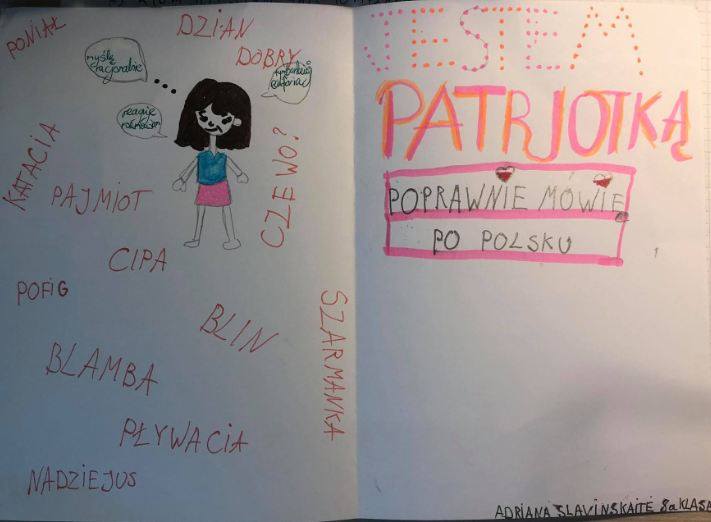 PONIAŁ
DZIAN
DOBRY
myślę
racjonalnie
reaguję
KATACIA
PAJMIOT
CZEWO?
CIPA
POFIG
BLIN
SZARMANKA
BLAMBA
PŁYWACIA
NADZIEJUS
JESTEM
PATRJOTKĄ
POPRAWNIE MÓWIĘ
PO POLSKU
ADRIANA SLAVINSKAITĖ 8a KLASA